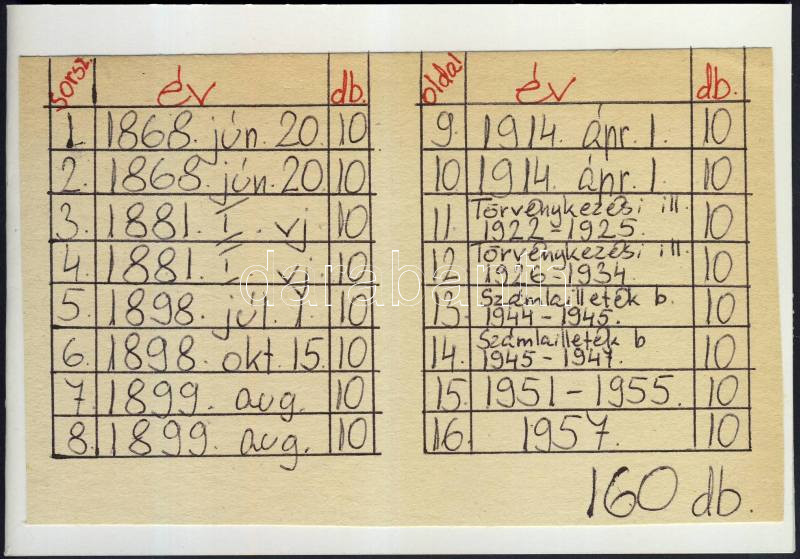 Sorsz. év db.
1. 1868. jún. 20 10
2. 1868. jún. 20. 10
3. 1881. I. vj 10
4. 1881. I. vj 10
5. 1898. júl. 1. 10
6. 1898. okt. 15. 10
7. 1899. aug. 10
8. 1899. aug. 10
oldal év db.
9. 1914. ápr. 1. 10
10 1914. ápr. 1. 10
11. Törvénykezési ill.
1922-1925. 10
12. Törvénykezési ill.
1926-1934. 10
13. Számlailleték b.
1944-1945. 10
14. Számlailleték b
1945-1947. 10
15. 1951-1955. 10
16. 1957. 10
160 db.
darabanth